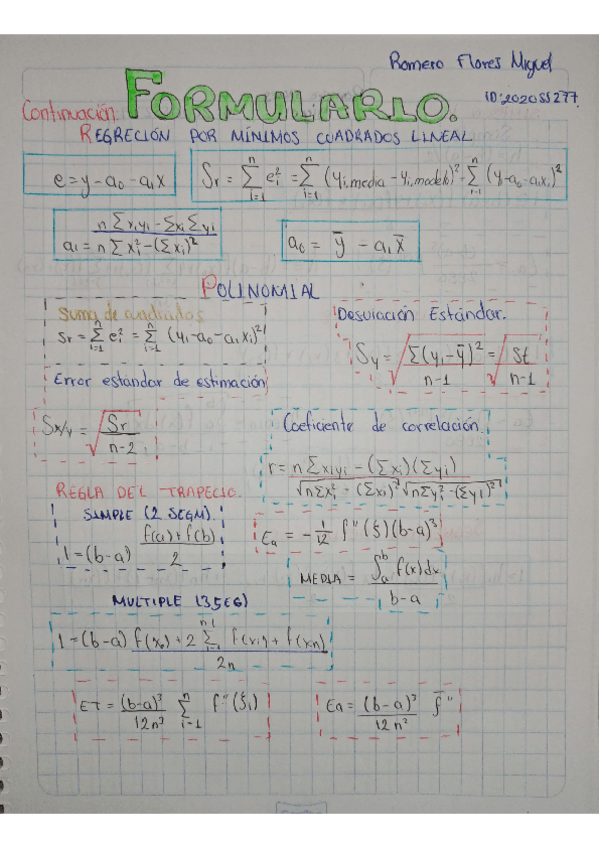 Romero Flores Miguel
Continuación: FORMULARIO.
ID:202055277
REGRECIÓN POR MÍNIMOS CUADRADOS LINEAL
e = y - a₀ - a₁x
Sr = Σ(i=1, n) eᵢ² = Σ(i=1, n) (yᵢ,media - yᵢ,modelo)² = Σ(i=1, n) (yᵢ-a₀-a₁xᵢ)²
a₁ = (n Σxᵢyᵢ - Σxᵢ Σyᵢ) / (n Σxᵢ² - (Σxᵢ)²)
a₀ = ȳ - a₁x̄
POLINOMIAL
Suma de cuadrados
Sr = Σ(i=1, n) eᵢ² = Σ(i=1, n) (yᵢ-a₀-a₁xᵢ)²
Desviación Estándar.
Sy = √(Σ(yᵢ-ȳ)² / (n-1)) = √(St / (n-1))
Error estandar de estimación
Sx/y = √(Sr / (n-2))
Coeficiente de correlación.
r = (n Σxᵢyᵢ - (Σxᵢ)(Σyᵢ)) / (√(nΣxᵢ² - (Σxᵢ)²) √(nΣyᵢ² - (Σyᵢ)²))
REGLA DEL TRAPECIO.
SIMPLE (2 SEGM).
I = (b-a) (f(a)+f(b)) / 2
Ea = -1/12 f''(ξ)(b-a)³
MEDIA = ∫ₐᵇ f(x)dx / (b-a)
MULTIPLE (3SEG)
I = (b-a) (f(x₀) + 2 Σ(i=1, n-1) f(xᵢ) + f(xn)) / 2n
ET = (b-a)³/12n³ Σ(i=1, n) f''(ξᵢ)
Ea = (b-a)³/12n² f̄''